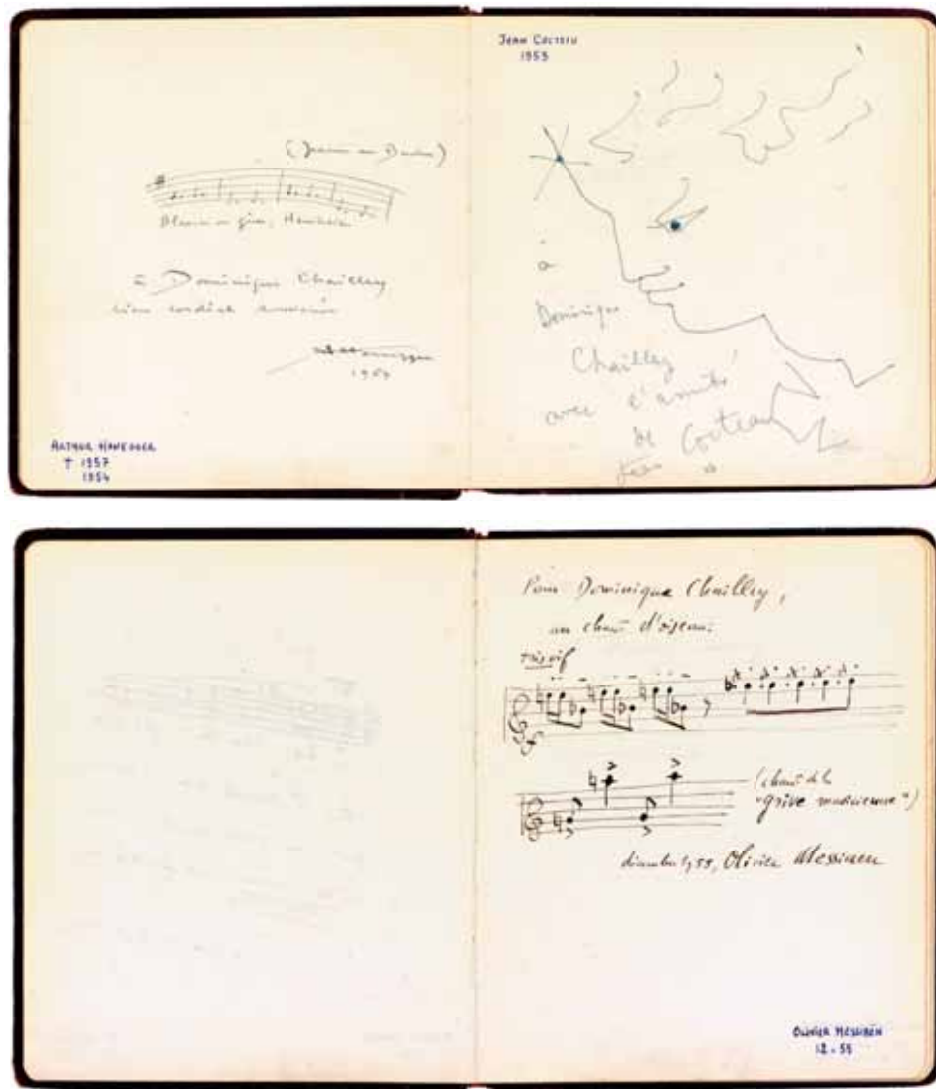 (Jeanne au
à Dominique Chailley
bien cordial souvenir
1954
ARTHUR HONEGGER
† 1957
1954
JEAN COCTEAU
1955
à
Dominique
Chailley
avec l'amitié
de
Jean Cocteau
Pour Dominique Chailley,
un chant d'oiseau:
très vif
f
(chant de la
"grive musicienne")
décembre 1955, Olivier Messiaen
OLIVIER MESSIAEN
12-55